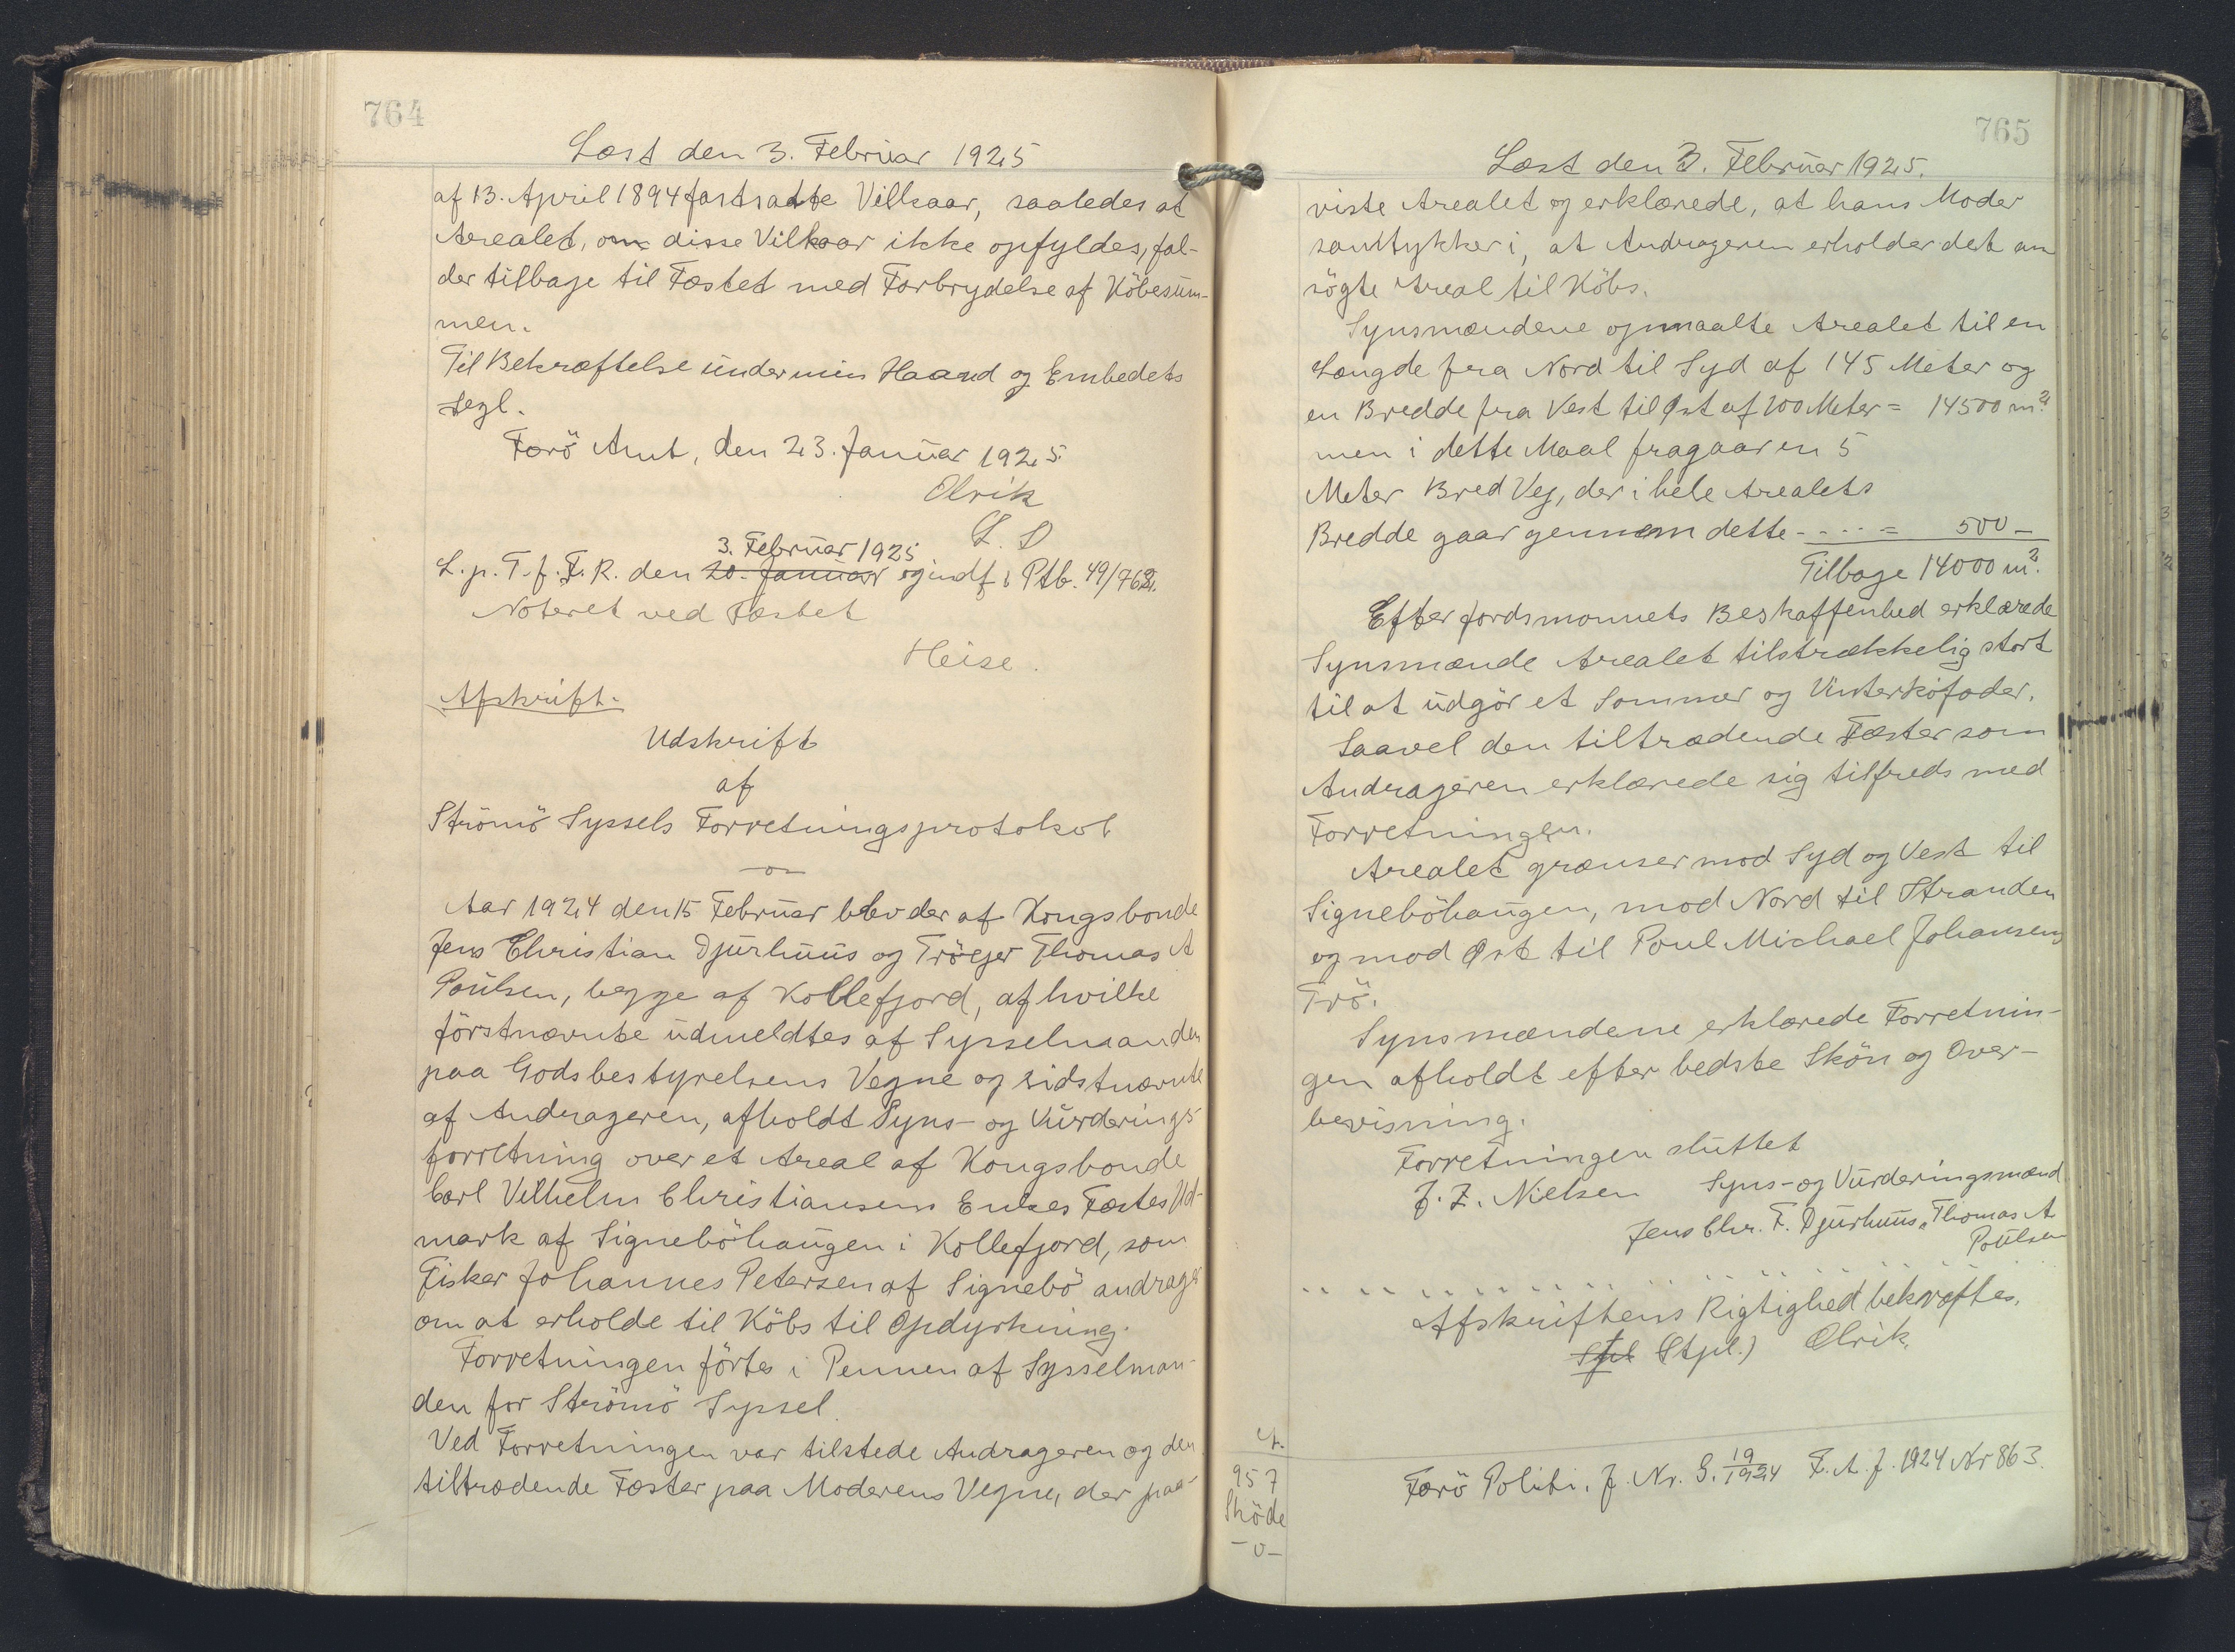 764
Læst den 3. Februar 1925
af 13. April 1894 fastsatte Vilkaar, saaledes at
Arealet, om disse Vilkaar ikke opfyldes, fal-
der tilbage til Fæstet med Forbrydelse af Købesum-
men.
Til Bekræftelse under min Haand og Embedets
Segl.
Færö Amt, den 23. Januar 1925.
Olrik
L. S
3. Februar 1925
L. p. T. f. F. R. den 20. Januar og indf i Ptb. 49/762.
Noteret ved Fæstet
Heise.
Afskrift.
Udskrift
af
Strömö Syssels Forretningsprotokol
-o-
Aar 1924 den 15 Februar blev der af Kongsbonde
Jens Christian Djurhuus og Tröejer Thomas A
Poulsen, begge af Kollefjord, af hvilke
förstnævnte udmeldtes af Sysselmanden
paa Godsbestyrelsens Vegne og sidstnævnte
af Andrageren, afholdt Syns- og Vurderings-
forretning over et Areal af Kongsbonde
Carl Vilhelm Christiansens Enkes Fæstes Ud-
mark af Signeböhaugen i Kollefjord, som
Fisker Johannes Petersen af Signebö andrager
om at erholde til Købs til Opdyrkning.
Forretningen förtes i Pennen af Sysselman-
den for Strömö Syssel.
Ved Forretningen var tilstede Andrageren og den
tiltrædende Fæster paa Moderens Vegne, der paa-
765
Læst den 3. Februar 1925.
viste Arealet og erklærede, at hans Moder
samtykker i, at Andrageren erholder det an
sögte Areal til Købs.
Synsmændene opmaalte Arealet til en
Længde fra Nord til Syd af 145 Meter og
en Bredde fra Vest til Øst af 100 Meter = 14500 m²
men i dette Maal fragaar en 5
Meter Bred Vej, der i hele Arealets
Bredde gaar gennem dette - . . . = 500 -
Tilbage 14000 m².
Efter Jordsmonnets Beskaffenhed erklærede
Synsmænde Arealet tilstrækkelig stort
til at udgör et Sommer og Vinterkofoder.
Saavel den tiltrædende Fæster som
Andrageren erklærede sig tilfreds med
Forretningen.
Arealet grænser mod Syd og Vest til
Signeböhaugen, mod Nord til Stranden
og mod Øst til Poul Michael Johansens
Trö.
Synsmændene erklærede Forretnin-
gen afholdt efter bedste Skön og Over-
bevisning.
Forretningen sluttet
J. Z. Nielsen Syns- og Vurderingsmænd
Jens Chr. F. Djurhuus, Thomas A
Poulsen
Afskriftens Rigtighed bekræftes.
Stpl (Stpl.) Olrik.
957
Sköde
-o-
Færö Politi. J. Nr. S. 19/1924 F. A. J. 1924 Nr 863.